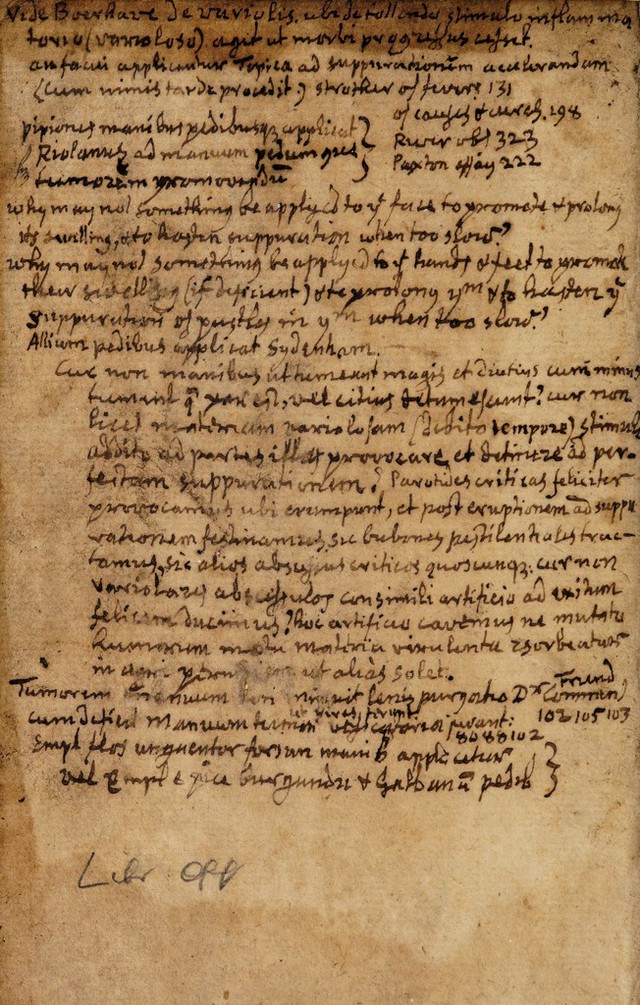 Vide Boerhave de variolis. ubi de tollendo stimulo inflamma
torio (varioloso) agit ut morbi progressus cesset.
an faciei applicentur Topica ad suppurationem accelerandam
(cum nimis tarde procedit) strother of fevers 131
of causes & cures. 198
pipiones manibus pedibusq; applicat
River obs 323
Riolanus ad manuum pedumque
Paxton essay 222
tumorem promovendum
why may not something be applyed to ye face to promote & prolong
its swelling, & to hasten suppuration when too slow?
why may not something be applyed to ye hands & feet to promote
their swelling (if deficient) & to prolong ym & to hasten ye
suppuration of pustles in ym when too slow?
Allium pedibus applicat Sydenham.
Cur non manibus ut tumeant magis et diutius cum minus
tument qm par est, vel citius detumescunt? cur non
licet materiam variolosam (debito tempore) stimulo
addito ad partes illas provocare, et detinere ad per-
fectam suppurationem? Parotides criticas feliciter
provocamus ubi erumpunt, et post eruptionem ad suppu
rationem festinamus, sic bubones pestilentiales trac-
tamus, sic alios abscessus criticos quoscunq; cur non
variolares abscessulos consimili artificio ad exitum
felicem ducimus? Hoc artificio cavemus ne mutato
humorum motu materia virulenta resorbeatur
in aegri perniciem ut alias solet.
Tumorem manuum lenis purgatio Dr Freind
Comment
cum deficit manuum tumor vesicatoria juvant: 102 105 103
ut vires ferunt
80 88 102
Empl flos unguentor forsan manib applicetur
vel Empl e pice burgundi & Galbanum pedib
Libr